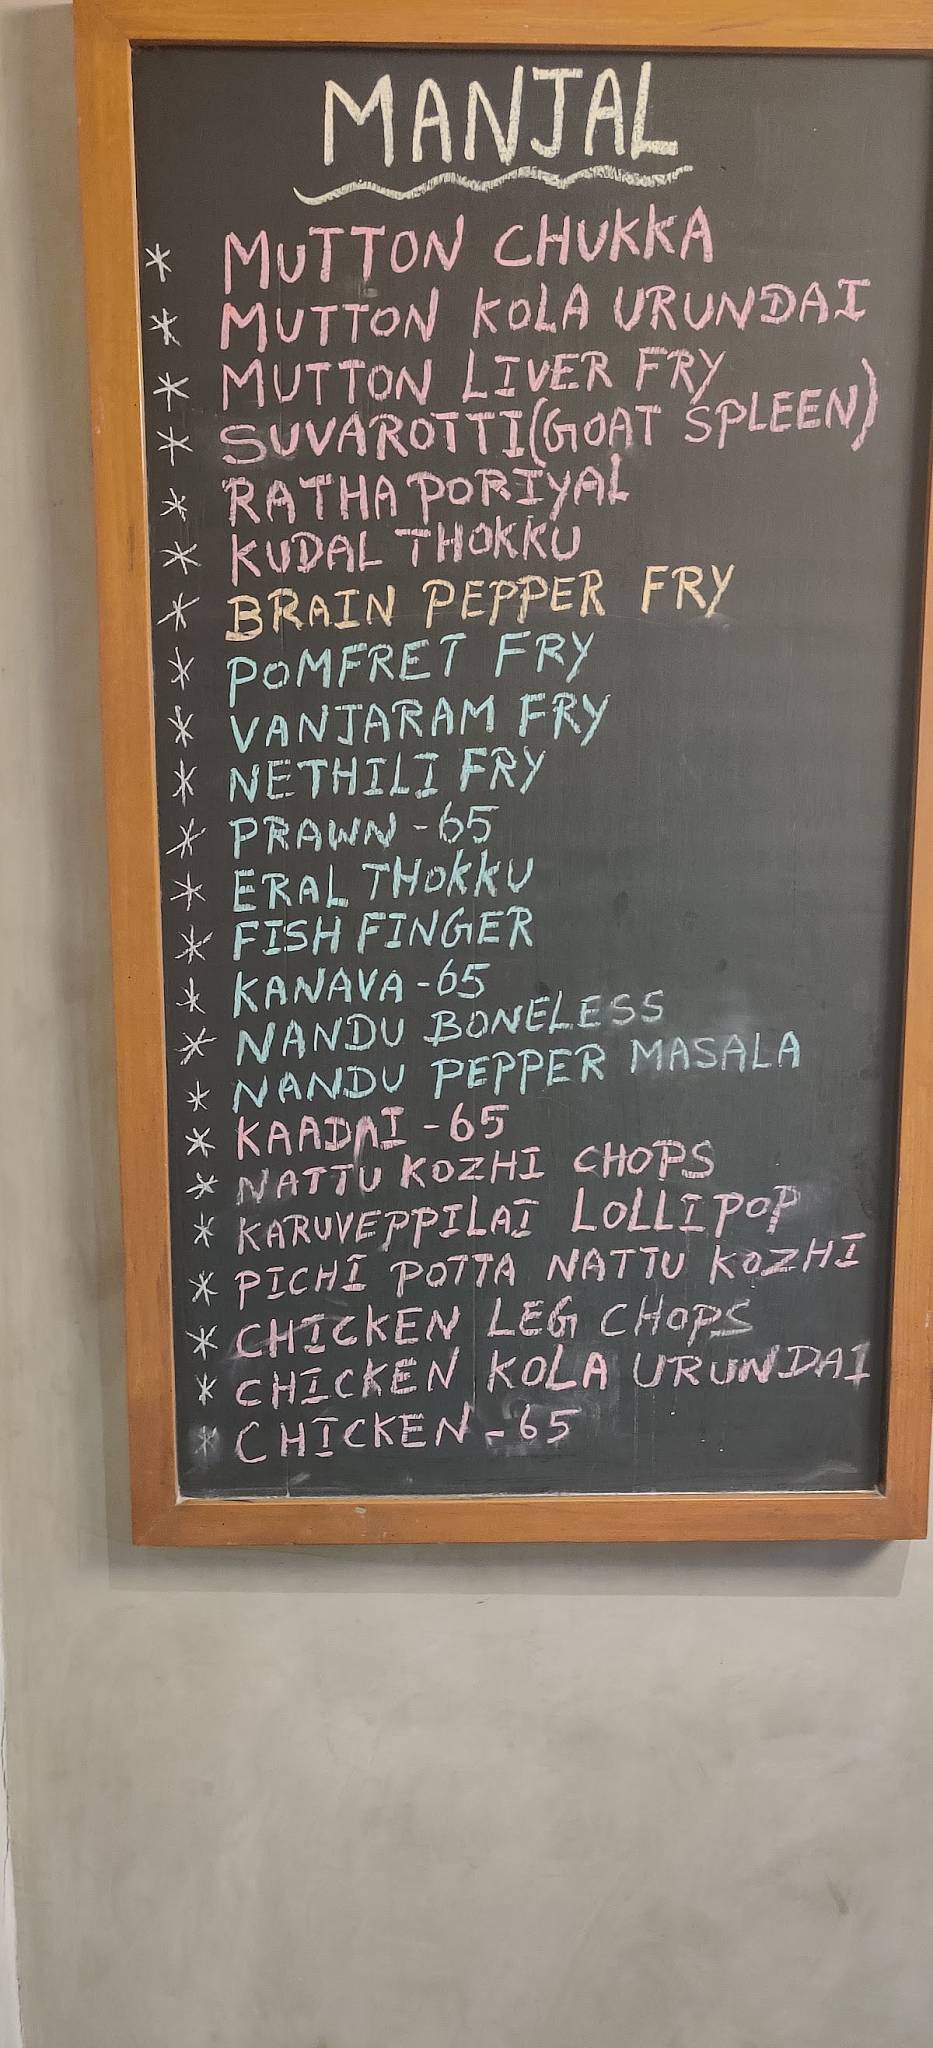 MANJAL
* MUTTON CHUKKA
* MUTTON KOLA URUNDAI
* MUTTON LIVER FRY
* SUVAROTTI(GOAT SPLEEN)
* RATHA PORIYAL
* KUDAL THOKKU
* BRAIN PEPPER FRY
* POMFRET FRY
* VANJARAM FRY
* NETHILI FRY
* PRAWN-65
* ERAL THOKKU
* FISH FINGER
* KANAVA-65
* NANDU BONELESS
* NANDU PEPPER MASALA
* KAADAI-65
* NATTU KOZHI CHOPS
* KARUVEPPILAI LOLLIPOP
* PICHI POTTA NATTU KOZHI
* CHICKEN LEG CHOPS
* CHICKEN KOLA URUNDAI
* CHICKEN-65